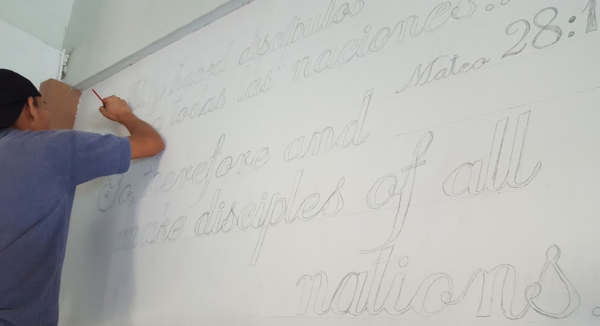 y haced discípulos
a todas las naciones...
Mateo 28:1
Go, therefore and
make disciples of all
nations.